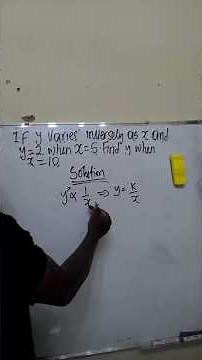 IF y varies inversely as x and
y=2 when x=5 find y when
x=10.
Solution
y ∝ 1/x ⇒ y = K/x